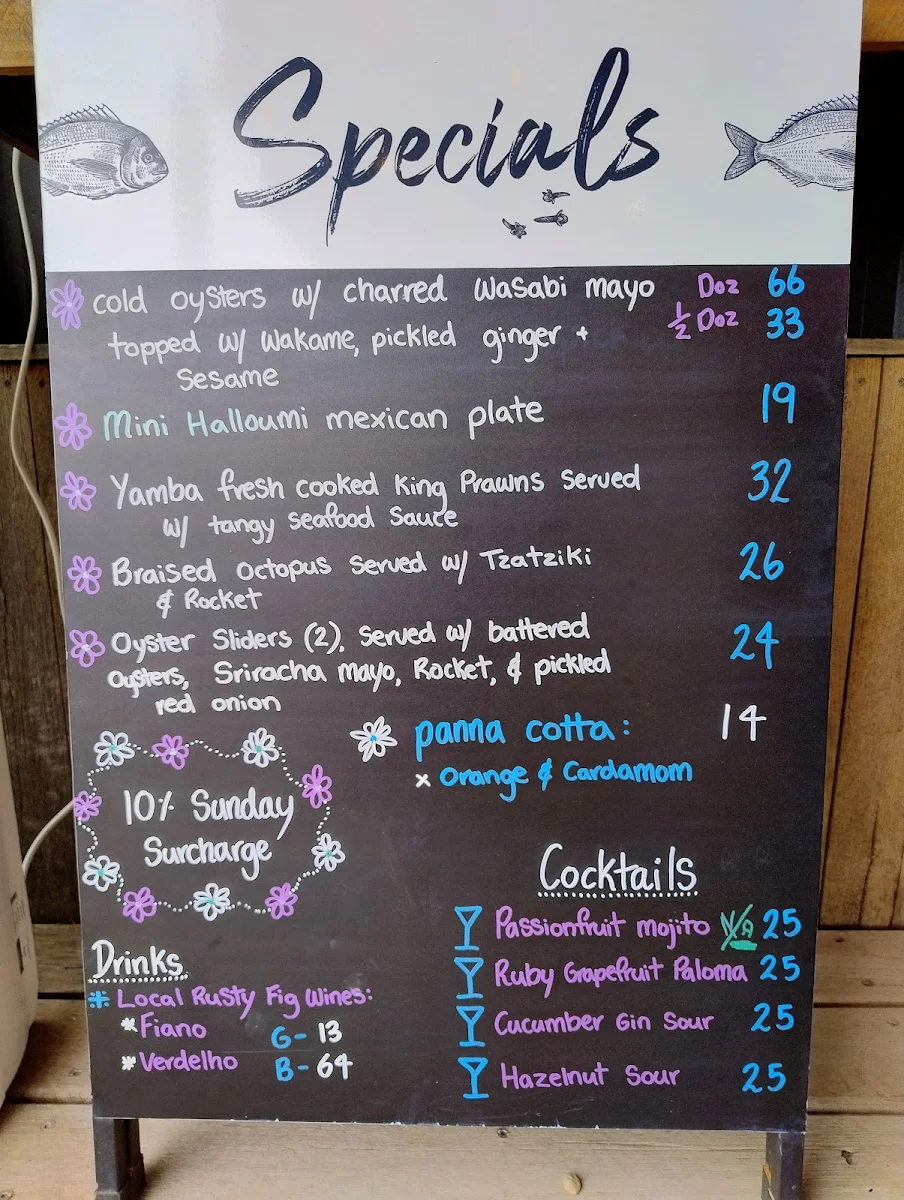 Specials
cold oysters w/ charred wasabi mayo Doz 66
topped w/ wakame, pickled ginger + ½ Doz 33
Sesame
Mini Halloumi mexican plate 19
Yamba fresh cooked King Prawns served 32
w/ tangy seafood sauce
Braised octopus served w/ Tzatziki 26
& Rocket
Oyster Sliders (2), served w/ battered 24
oysters, Sriracha mayo, Rocket, & pickled
red onion
panna cotta: 14
x Orange & Cardamom
10% Sunday
Surcharge
Drinks
# Local Rusty Fig Wines:
* Fiano G- 13
* Verdelho B- 64
Cocktails
Passionfruit mojito N/A 25
Ruby Grapefruit Paloma 25
Cucumber Gin Sour 25
Hazelnut Sour 25